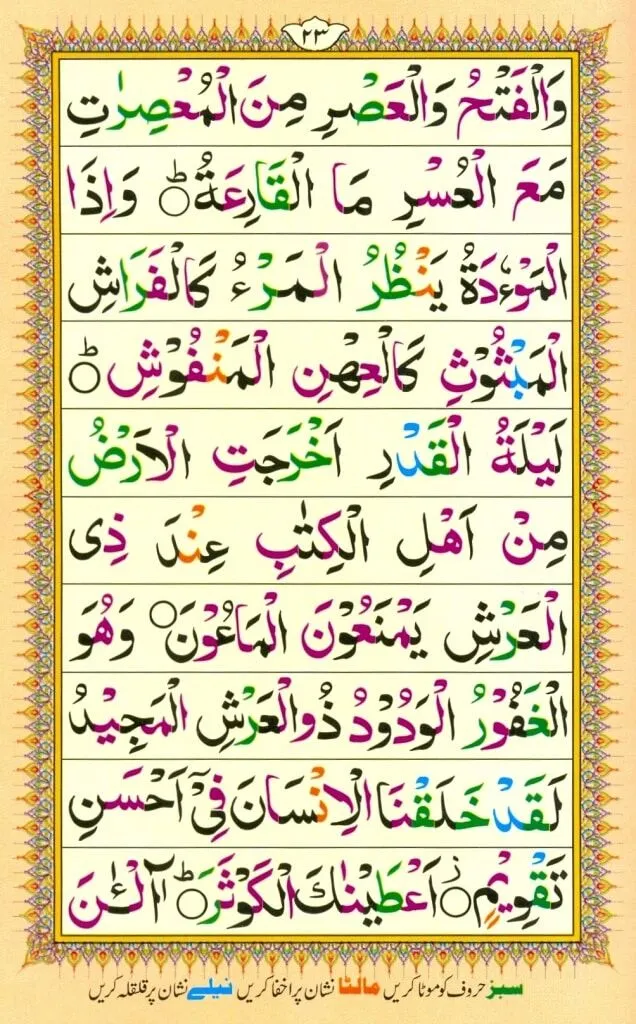 ٢٣
وَالْفَتْحُ وَالْعَصْرِ مِنَ الْمُعْصِرٰتِ
مَعَ الْعُسْرِ مَا الْقَارِعَةُ ؕ وَاِذَا
الْمَوْءٗدَةُ يَنْظُرُ الْمَرْءُ كَالْفَرَاشِ
الْمَبْثُوْثِ كَالْعِهْنِ الْمَنْفُوْشِ ؕ
لَيْلَةُ الْقَدْرِ اَخْرَجَتِ الْاَرْضُ
مِنْ اَهْلِ الْكِتٰبِ عِنْدَ ذِى
الْعَرْشِ يَمْنَعُوْنَ الْمَاعُوْنَ ۝ وَهُوَ
الْغَفُوْرُ الْوَدُوْدُ ذُوالْعَرْشِ الْمَجِيْدُ
لَقَدْ خَلَقْنَا الْاِنْسَانَ فِىْٓ اَحْسَنِ
تَقْوِيْمٍ ۝ز اَعْطَيْنٰكَ الْكَوْثَرَ ؕ آلْـٰٔنَ
سبز حروف کو موٹا کریں مالٹا نشان پر اخفا کریں نیلے نشان پر قلقلہ کریں